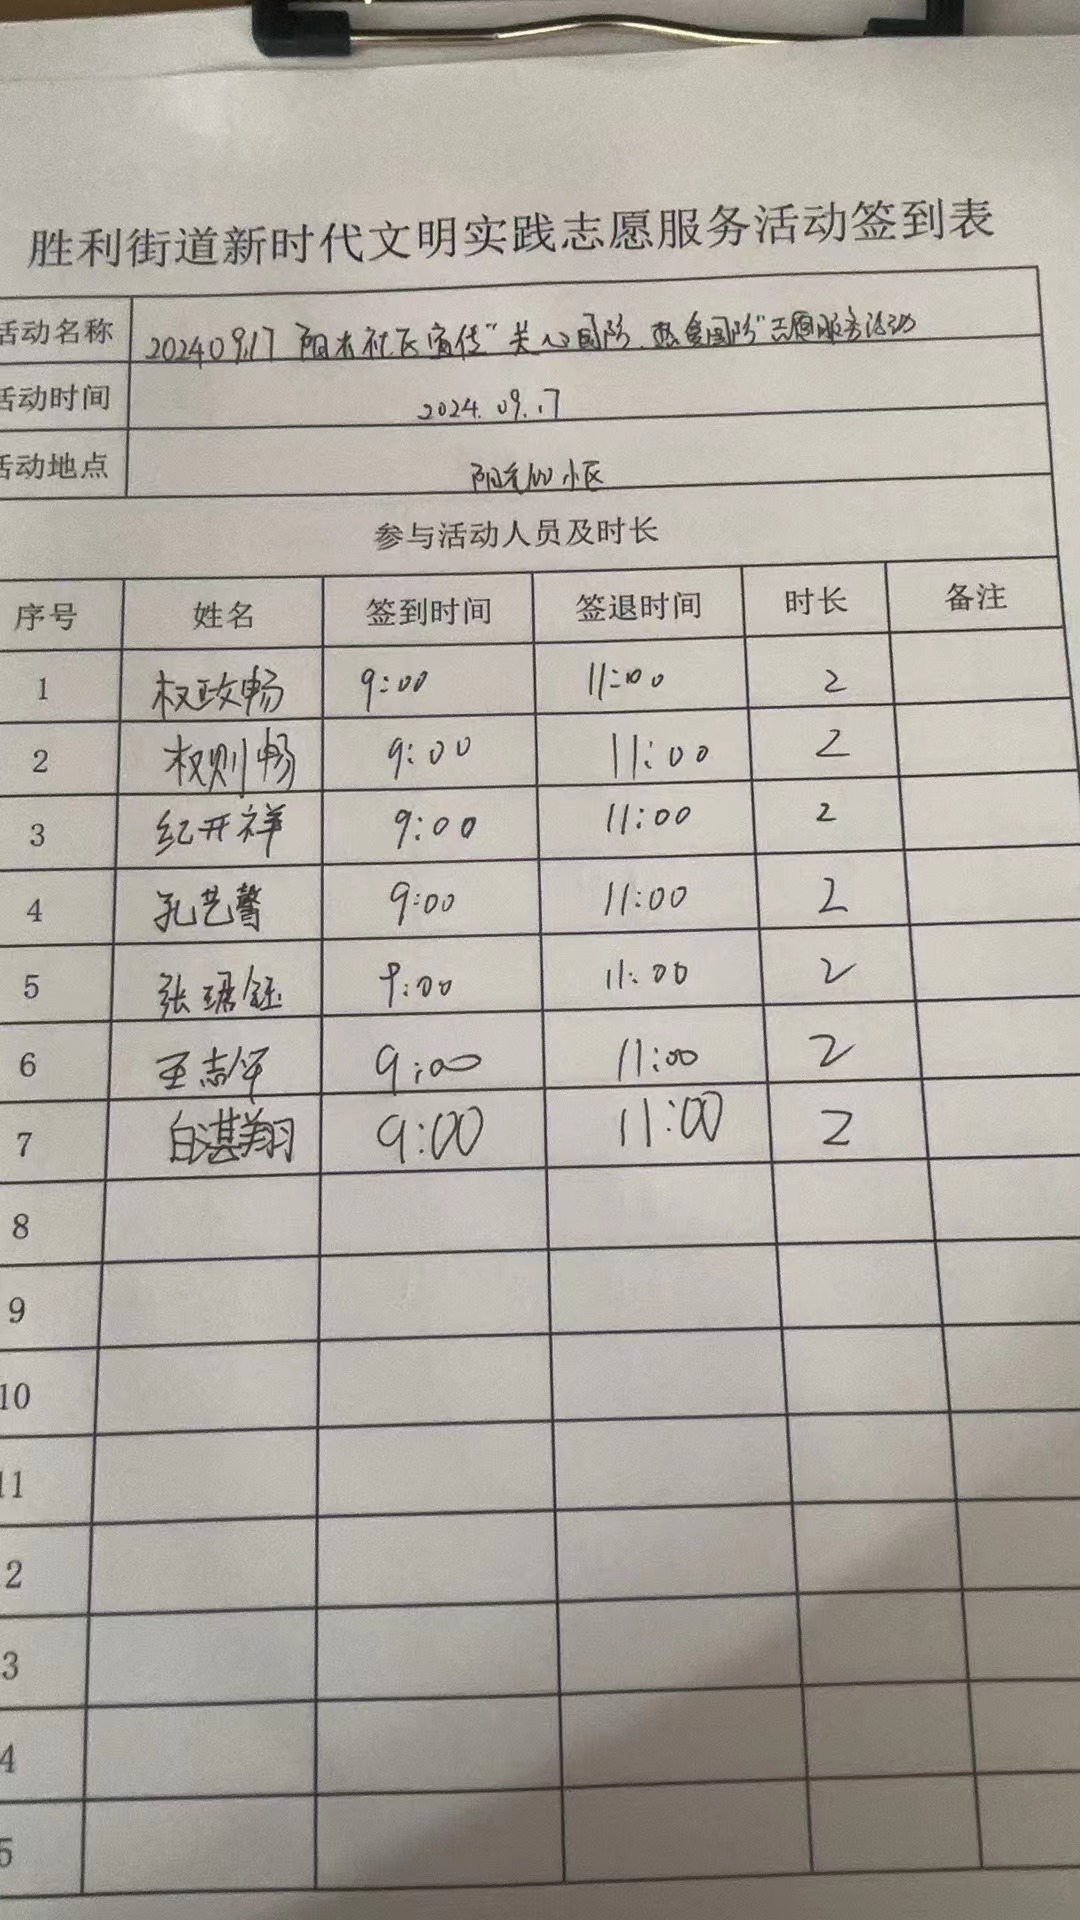 胜利街道新时代文明实践志愿服务活动签到表
活动名称 20240917 阳光社区宣传"关心国防、热爱国防"志愿服务活动
活动时间 2024.09.17
活动地点 阳光100小区
参与活动人员及时长
序号 姓名 签到时间 签退时间 时长 备注
1 权政畅 9:00 11:00 2
2 权则畅 9:00 11:00 2
3 纪开祥 9:00 11:00 2
4 孔艺馨 9:00 11:00 2
5 张珺钰 9:00 11:00 2
6 王志军 9:00 11:00 2
7 白湛翔 9:00 11:00 2
8
9
10
11
2
3
4
5